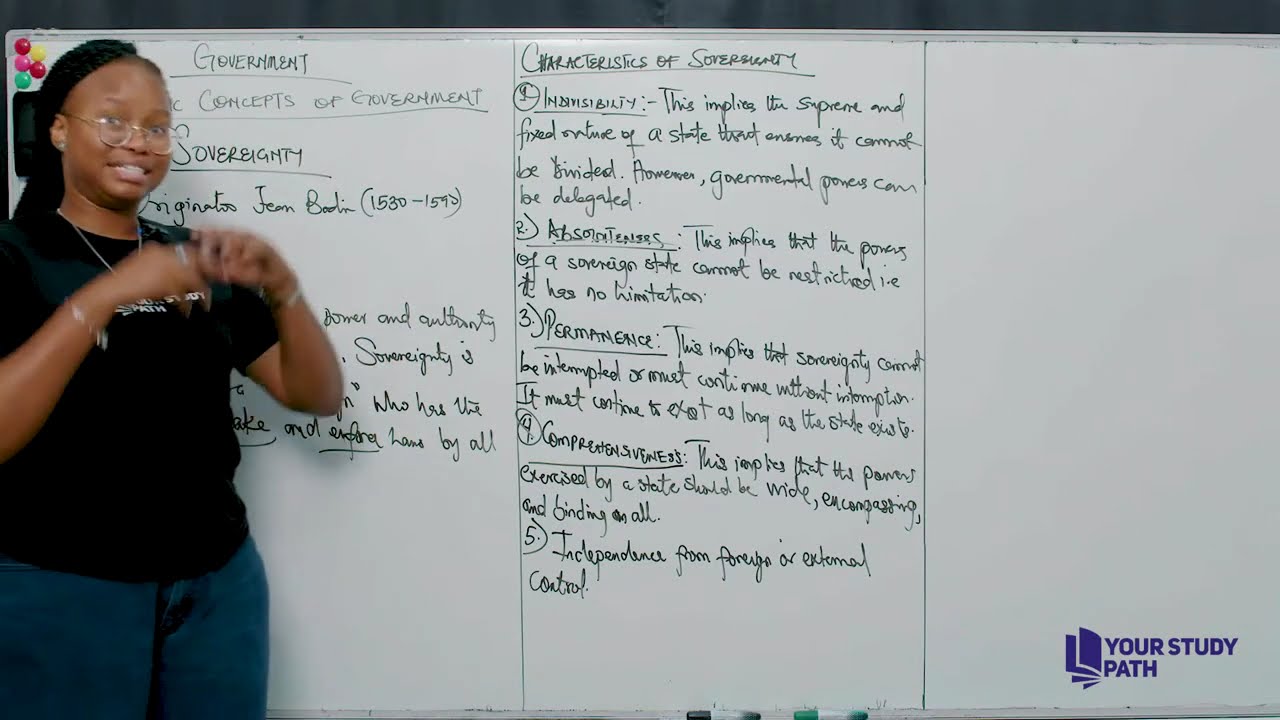 GOVERNMENT
IC CONCEPTS OF GOVERNMENT
SOVEREIGNTY
riginator Jean Bodin (1530-1590)
power and authority
Sovereignty is
who has the
ake and enforce laws by all
YOUR STUDY
PATH
CHARACTERISTICS OF SOVEREIGNTY
1. INDIVISIBILITY:- This implies the supreme and
fixed nature of a state that ensures it cannot
be divided. However, governmental powers can
be delegated.
2.) ABSOLUTENESS: This implies that the powers
of a sovereign state cannot be restricted i.e
It has no limitation.
3.) PERMANENCE: This implies that sovereignty cannot
be interrupted or must continue without interruption.
It must continue to exist as long as the state exists.
4. COMPREHENSIVENESS: This implies that the powers
exercised by a state should be wide, encompassing,
and binding on all.
5.) Independence from foreign or external
control.
YOUR STUDY
PATH